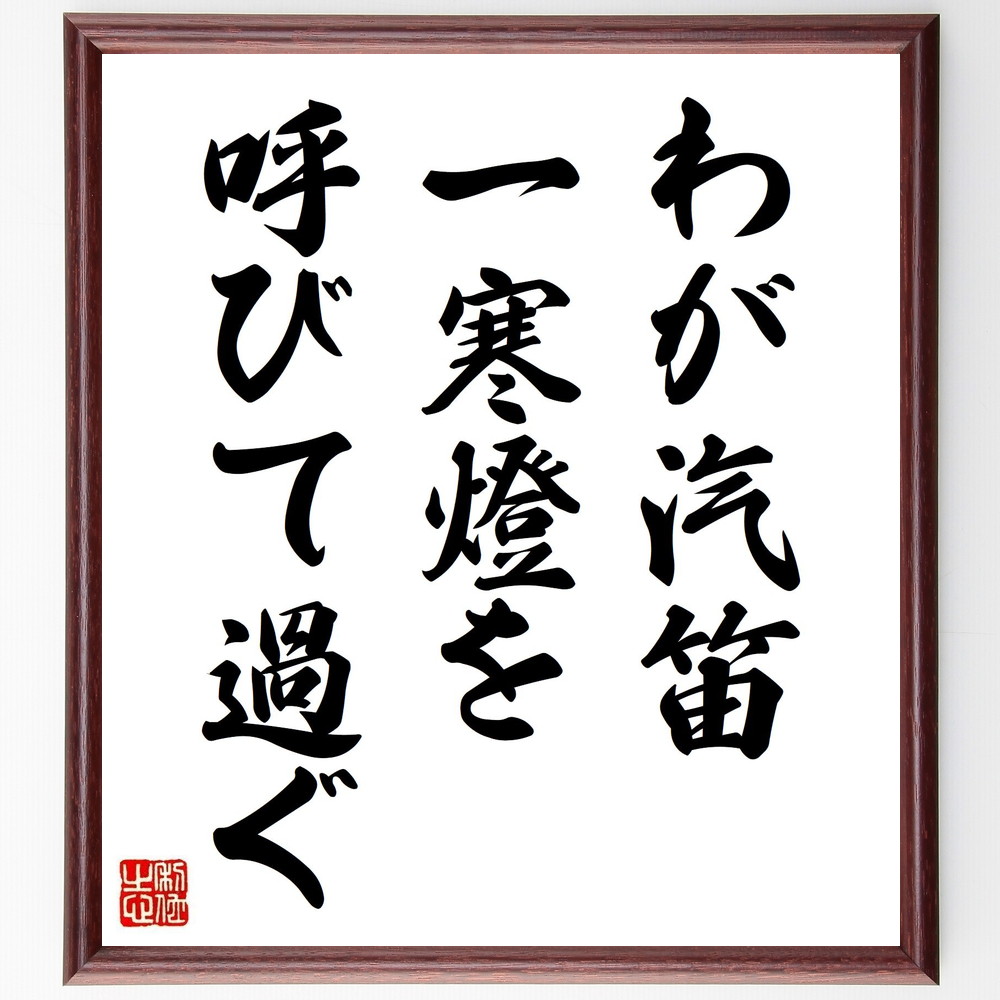 わが汽笛
一寒燈を
呼びて過ぐ